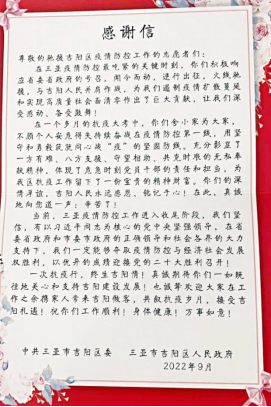 感谢信
尊敬的驰援吉阳区疫情防控工作的志愿者们：
在三亚疫情防控最吃紧的关键时刻，你们积极响
应省委省政府的号召，闻令而动，逆行出征，火线驰
援，与吉阳人民并肩作战，为我们遏制疫情扩散蔓延
和实现高质量社会面清零作出了巨大贡献，让我们深
受感动、备受鼓舞！
在一个多月的抗疫大考中，你们舍小家为大家，
不顾个人安危得失持续奋战在疫情防控第一线，用坚
守和勇毅筑就同心战“疫”的坚固防线，充分彰显了
一方有难、八方支援，守望相助、共克时艰的无私奉
献精神，体现了危急时刻党员干部的责任和担当，为
我区抗疫工作留下了一份宝贵的精神财富。你们的深
情厚谊，吉阳人民永远感恩，铭记于心！在此，真诚
地向您道一声：辛苦了！
当前，三亚疫情防控工作进入收尾阶段，我们坚
信，有以习近平同志为核心的党中央坚强领导，在省
委省政府和市委市政府的正确领导和社会各界的大力
支持下，我们一定能够夺取疫情防控与经济社会发展
双胜利，以优异的成绩迎接党的二十大胜利召开！
一次抗疫行，终生吉阳情！真诚期待你们一如既
往地关心和支持吉阳建设发展！也诚挚欢迎大家在工
作之余携家人常来吉阳做客，共叙抗疫岁月，接受吉
阳礼遇！祝你们工作顺利！身体健康！万事如意！
中共三亚市吉阳区委 三亚市吉阳区人民政府
2022年9月